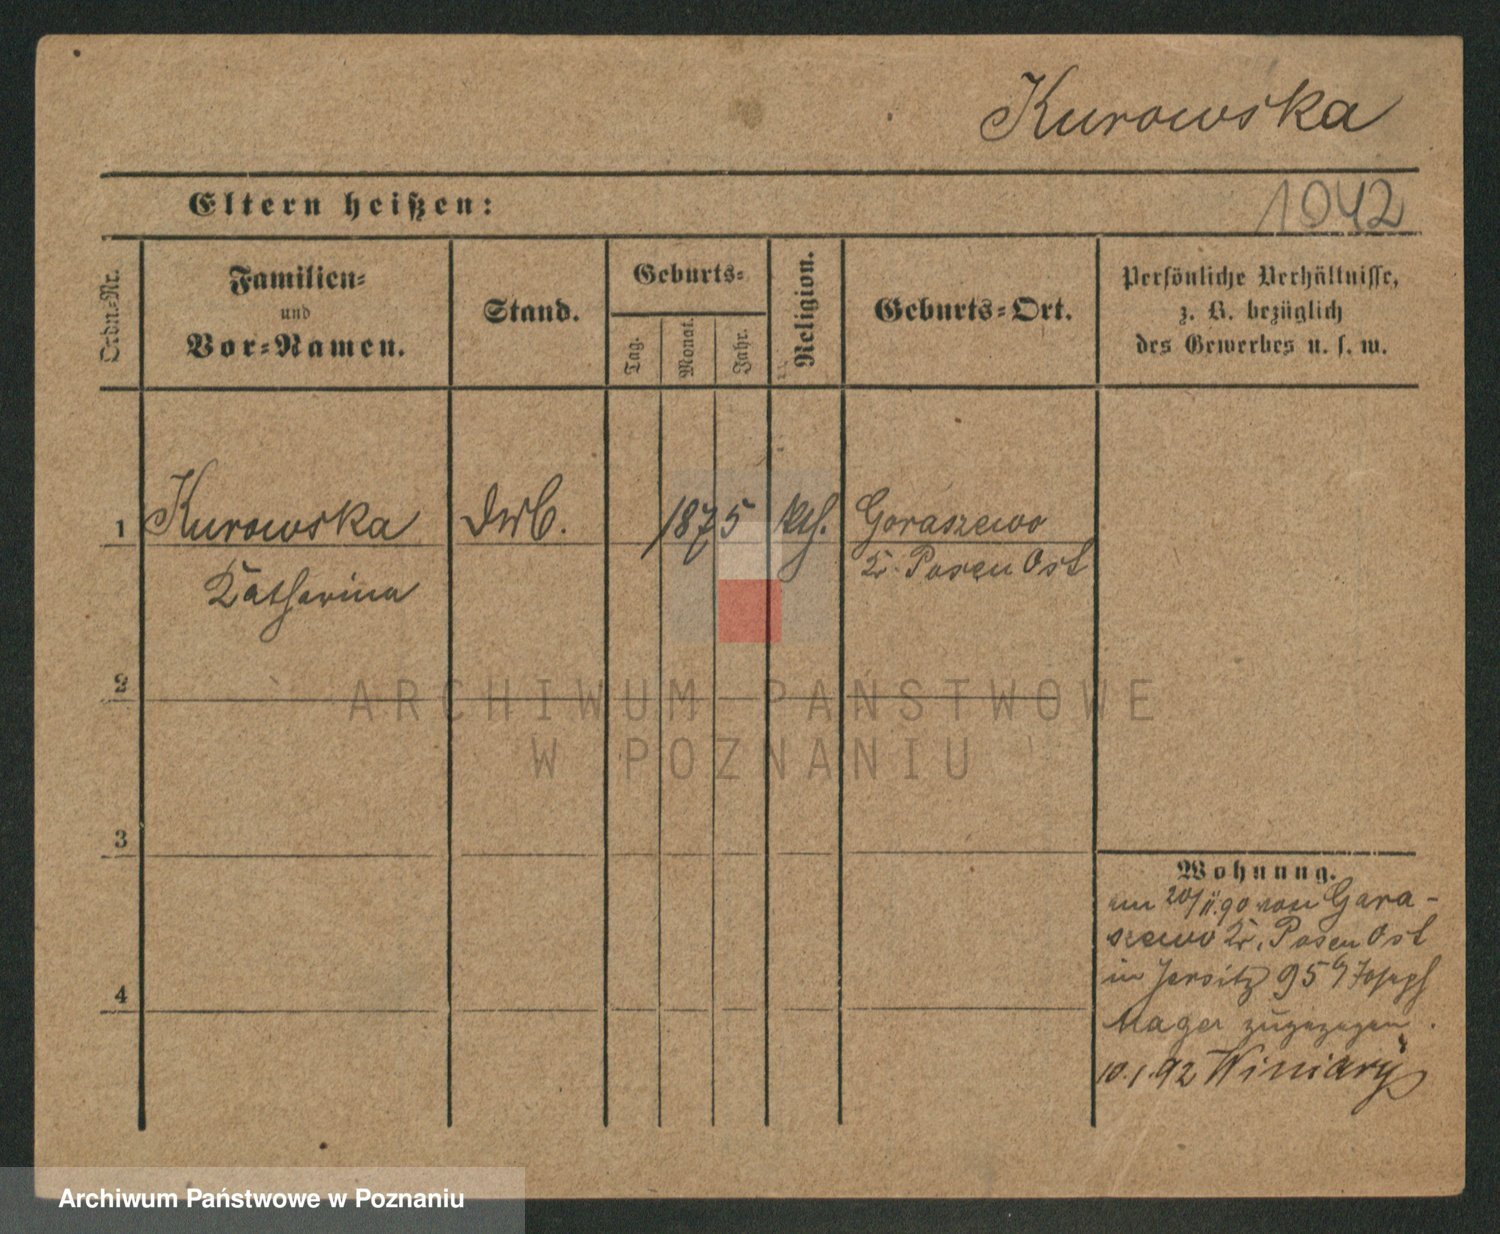 Kurowska
Eltern heißen:
1042
Ordn.-Nr.
Familien-
und
Vor-Namen.
Stand.
Geburts-
Tag.
Monat.
Jahr.
Religion.
Geburts-Ort.
Persönliche Verhältnisse,
z. B. bezüglich
des Gewerbes u. s. w.
1 Kurowska 1875 kth. Goraszewo
Katharina
Kr. Posen Ost
2
ARCHIWUM PAŃSTWOWE
W POZNANIU
3
4
Wohnung.
am 20/II.90 von Gara-
szewo Kr. Posen Ost
in Jersitz 95 b/ Joseph
Mager zugezogen.
10.1.92 Winiary
Archiwum Państwowe w Poznaniu